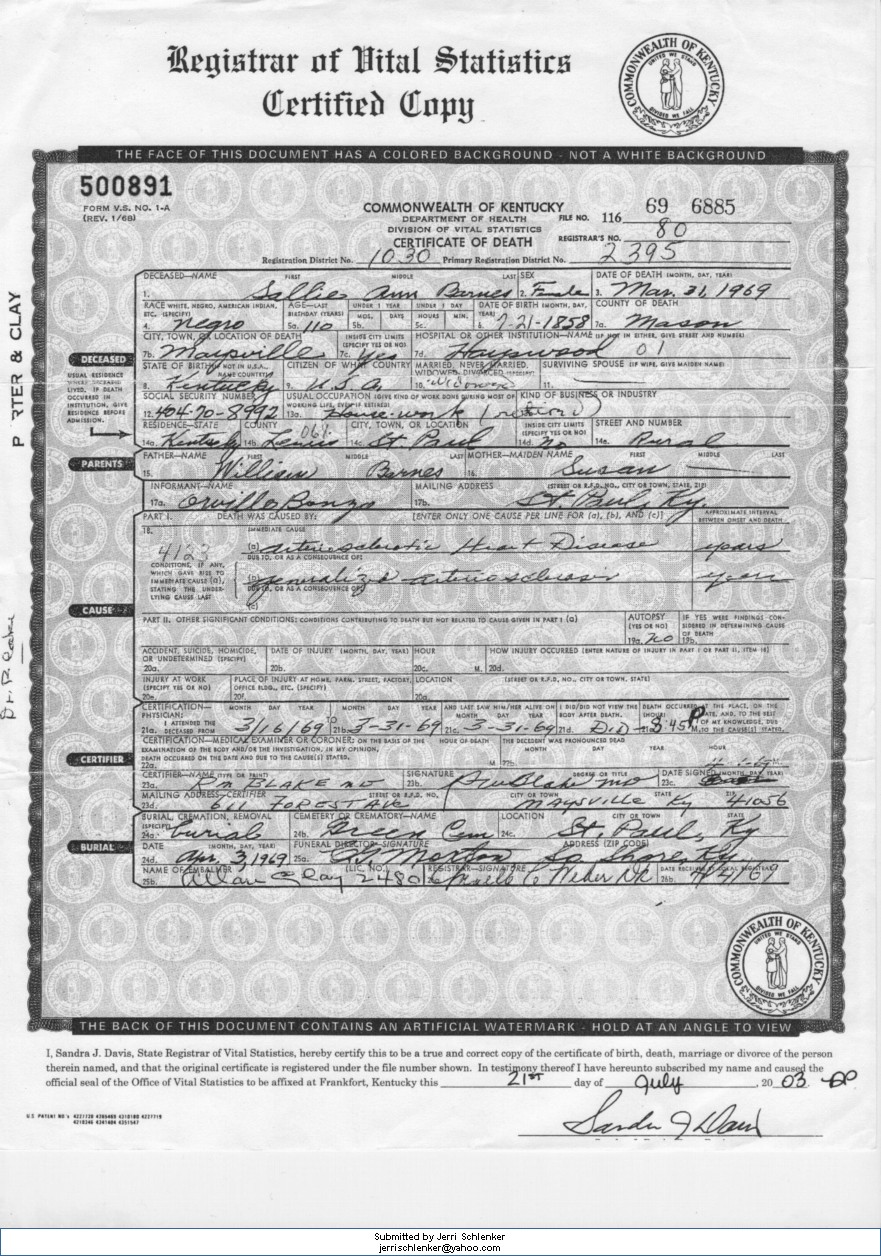 Registrar of Vital Statistics
Certified Copy
COMMONWEALTH OF KENTUCKY
UNITED WE STAND
DIVIDED WE FALL
THE FACE OF THIS DOCUMENT HAS A COLORED BACKGROUND - NOT A WHITE BACKGROUND
500891
FORM V.S. NO. 1-A
(REV. 1/68)
COMMONWEALTH OF KENTUCKY
DEPARTMENT OF HEALTH
DIVISION OF VITAL STATISTICS
CERTIFICATE OF DEATH
FILE NO. 116 69 6885
REGISTRAR'S NO. 80
Registration District No. 1030 Primary Registration District No. 2395
DECEASED—NAME FIRST MIDDLE LAST SEX DATE OF DEATH (MONTH, DAY, YEAR)
1. Sallie Ann Barnes 2. Female 3. Mar. 31, 1969
RACE WHITE, NEGRO, AMERICAN INDIAN, ETC. (SPECIFY) AGE—LAST BIRTHDAY (YEARS) UNDER 1 YEAR UNDER 1 DAY DATE OF BIRTH (MONTH, DAY, YEAR) COUNTY OF DEATH
MOS. DAYS HOURS MIN.
4. Negro 5a. 110 5b. 5c. 6. 7-21-1858 7a. Mason
CITY, TOWN, OR LOCATION OF DEATH INSIDE CITY LIMITS (SPECIFY YES OR NO) HOSPITAL OR OTHER INSTITUTION—NAME (IF NOT IN EITHER, GIVE STREET AND NUMBER)
7b. Maysville 7c. Yes 7d. Hayswood 01
DECEASED
USUAL RESIDENCE WHERE DECEASED LIVED. IF DEATH OCCURRED IN INSTITUTION, GIVE RESIDENCE BEFORE ADMISSION.
STATE OF BIRTH (IF NOT IN U.S.A., NAME COUNTRY) CITIZEN OF WHAT COUNTRY MARRIED, NEVER MARRIED, WIDOWED, DIVORCED (SPECIFY) SURVIVING SPOUSE (IF WIFE, GIVE MAIDEN NAME)
8. Kentucky 9. U.S.A. 10. Widower 11.
SOCIAL SECURITY NUMBER USUAL OCCUPATION (GIVE KIND OF WORK DONE DURING MOST OF WORKING LIFE, EVEN IF RETIRED) KIND OF BUSINESS OR INDUSTRY
12. 404-70-8992 13a. House-work (retired)
RESIDENCE—STATE COUNTY CITY, TOWN, OR LOCATION INSIDE CITY LIMITS (SPECIFY YES OR NO) STREET AND NUMBER
14a. Kentucky 14b. Lewis 14c. St. Paul 14d. No 14e. Rural
PARENTS
FATHER—NAME FIRST MIDDLE LAST MOTHER—MAIDEN NAME FIRST MIDDLE LAST
15. William Barnes 16. Susan —
INFORMANT—NAME MAILING ADDRESS (STREET OR R.F.D. NO., CITY OR TOWN, STATE, ZIP)
17a. Orville Bonzo 17b. St. Paul, Ky
PART I. DEATH WAS CAUSED BY: [ENTER ONLY ONE CAUSE PER LINE FOR (a), (b), AND (c)] APPROXIMATE INTERVAL BETWEEN ONSET AND DEATH
18. IMMEDIATE CAUSE
(a) arteriosclerotic Heart Disease years
DUE TO, OR AS A CONSEQUENCE OF:
CONDITIONS, IF ANY, WHICH GAVE RISE TO IMMEDIATE CAUSE (a), STATING THE UNDERLYING CAUSE LAST
(b) generalized arteriosclerosis years
DUE TO, OR AS A CONSEQUENCE OF:
(c)
CAUSE
PART II. OTHER SIGNIFICANT CONDITIONS: CONDITIONS CONTRIBUTING TO DEATH BUT NOT RELATED TO CAUSE GIVEN IN PART I (a) AUTOPSY (YES OR NO) IF YES WERE FINDINGS CONSIDERED IN DETERMINING CAUSE OF DEATH
19a. No 19b.
ACCIDENT, SUICIDE, HOMICIDE, OR UNDETERMINED (SPECIFY) DATE OF INJURY (MONTH, DAY, YEAR) HOUR HOW INJURY OCCURRED (ENTER NATURE OF INJURY IN PART I OR PART II, ITEM 18)
20a. 20b. 20c. M. 20d.
INJURY AT WORK (SPECIFY YES OR NO) PLACE OF INJURY AT HOME, FARM, STREET, FACTORY, OFFICE BLDG., ETC. (SPECIFY) LOCATION (STREET OR R.F.D. NO., CITY OR TOWN, STATE)
20e. 20f. 20g.
CERTIFICATION—PHYSICIAN: MONTH DAY YEAR MONTH DAY YEAR AND LAST SAW HIM/HER ALIVE ON MONTH DAY YEAR I DID/DID NOT VIEW THE BODY AFTER DEATH. DEATH OCCURRED AT THE PLACE, ON THE DATE, AND, TO THE BEST OF MY KNOWLEDGE, DUE TO THE CAUSE(S) STATED.
21a. I ATTENDED THE DECEASED FROM 3/16/69 TO 21b. 3-31-69 21c. 3-31-69 21d. DID
CERTIFIER
CERTIFICATION—MEDICAL EXAMINER OR CORONER: ON THE BASIS OF THE EXAMINATION OF THE BODY AND/OR THE INVESTIGATION, IN MY OPINION, DEATH OCCURRED ON THE DATE AND DUE TO THE CAUSE(S) STATED. HOUR OF DEATH THE DECEDENT WAS PRONOUNCED DEAD MONTH DAY YEAR HOUR
22a. M.
CERTIFIER—NAME (TYPE OR PRINT) SIGNATURE DEGREE OR TITLE DATE SIGNED (MONTH, DAY, YEAR)
23a. BLAKE MD 23b. Blake MD 23c.
MAILING ADDRESS—CERTIFIER STREET OR R.F.D. NO. CITY OR TOWN STATE ZIP
23d. 611 FOREST AVE MAYSVILLE Ky 41056
BURIAL, CREMATION, REMOVAL (SPECIFY) CEMETERY OR CREMATORY—NAME LOCATION CITY OR TOWN STATE
24a. burial 24b. Green Cem 24c. St. Paul, Ky
BURIAL
DATE (MONTH, DAY, YEAR) FUNERAL DIRECTOR—SIGNATURE ADDRESS (ZIP CODE)
24d. Apr. 3, 1969 25a. Morton So Shore, Ky
NAME OF EMBALMER (LIC. NO.) REGISTRAR—SIGNATURE DATE RECEIVED BY LOCAL REGISTRAR
25b. Allan Clay 2480 26b.
P RTER & CLAY
COMMONWEALTH OF KENTUCKY
UNITED WE STAND
DIVIDED WE FALL
THE BACK OF THIS DOCUMENT CONTAINS AN ARTIFICIAL WATERMARK - HOLD AT AN ANGLE TO VIEW
I, Sandra J. Davis, State Registrar of Vital Statistics, hereby certify this to be a true and correct copy of the certificate of birth, death, marriage or divorce of the person
therein named, and that the original certificate is registered under the file number shown. In testimony thereof I have hereunto subscribed my name and caused the
official seal of the Office of Vital Statistics to be affixed at Frankfort, Kentucky this 21st day of July, 20 03
Sandra J Davis
Submitted by Jerri Schlenker
jerrischlenker@yahoo.com